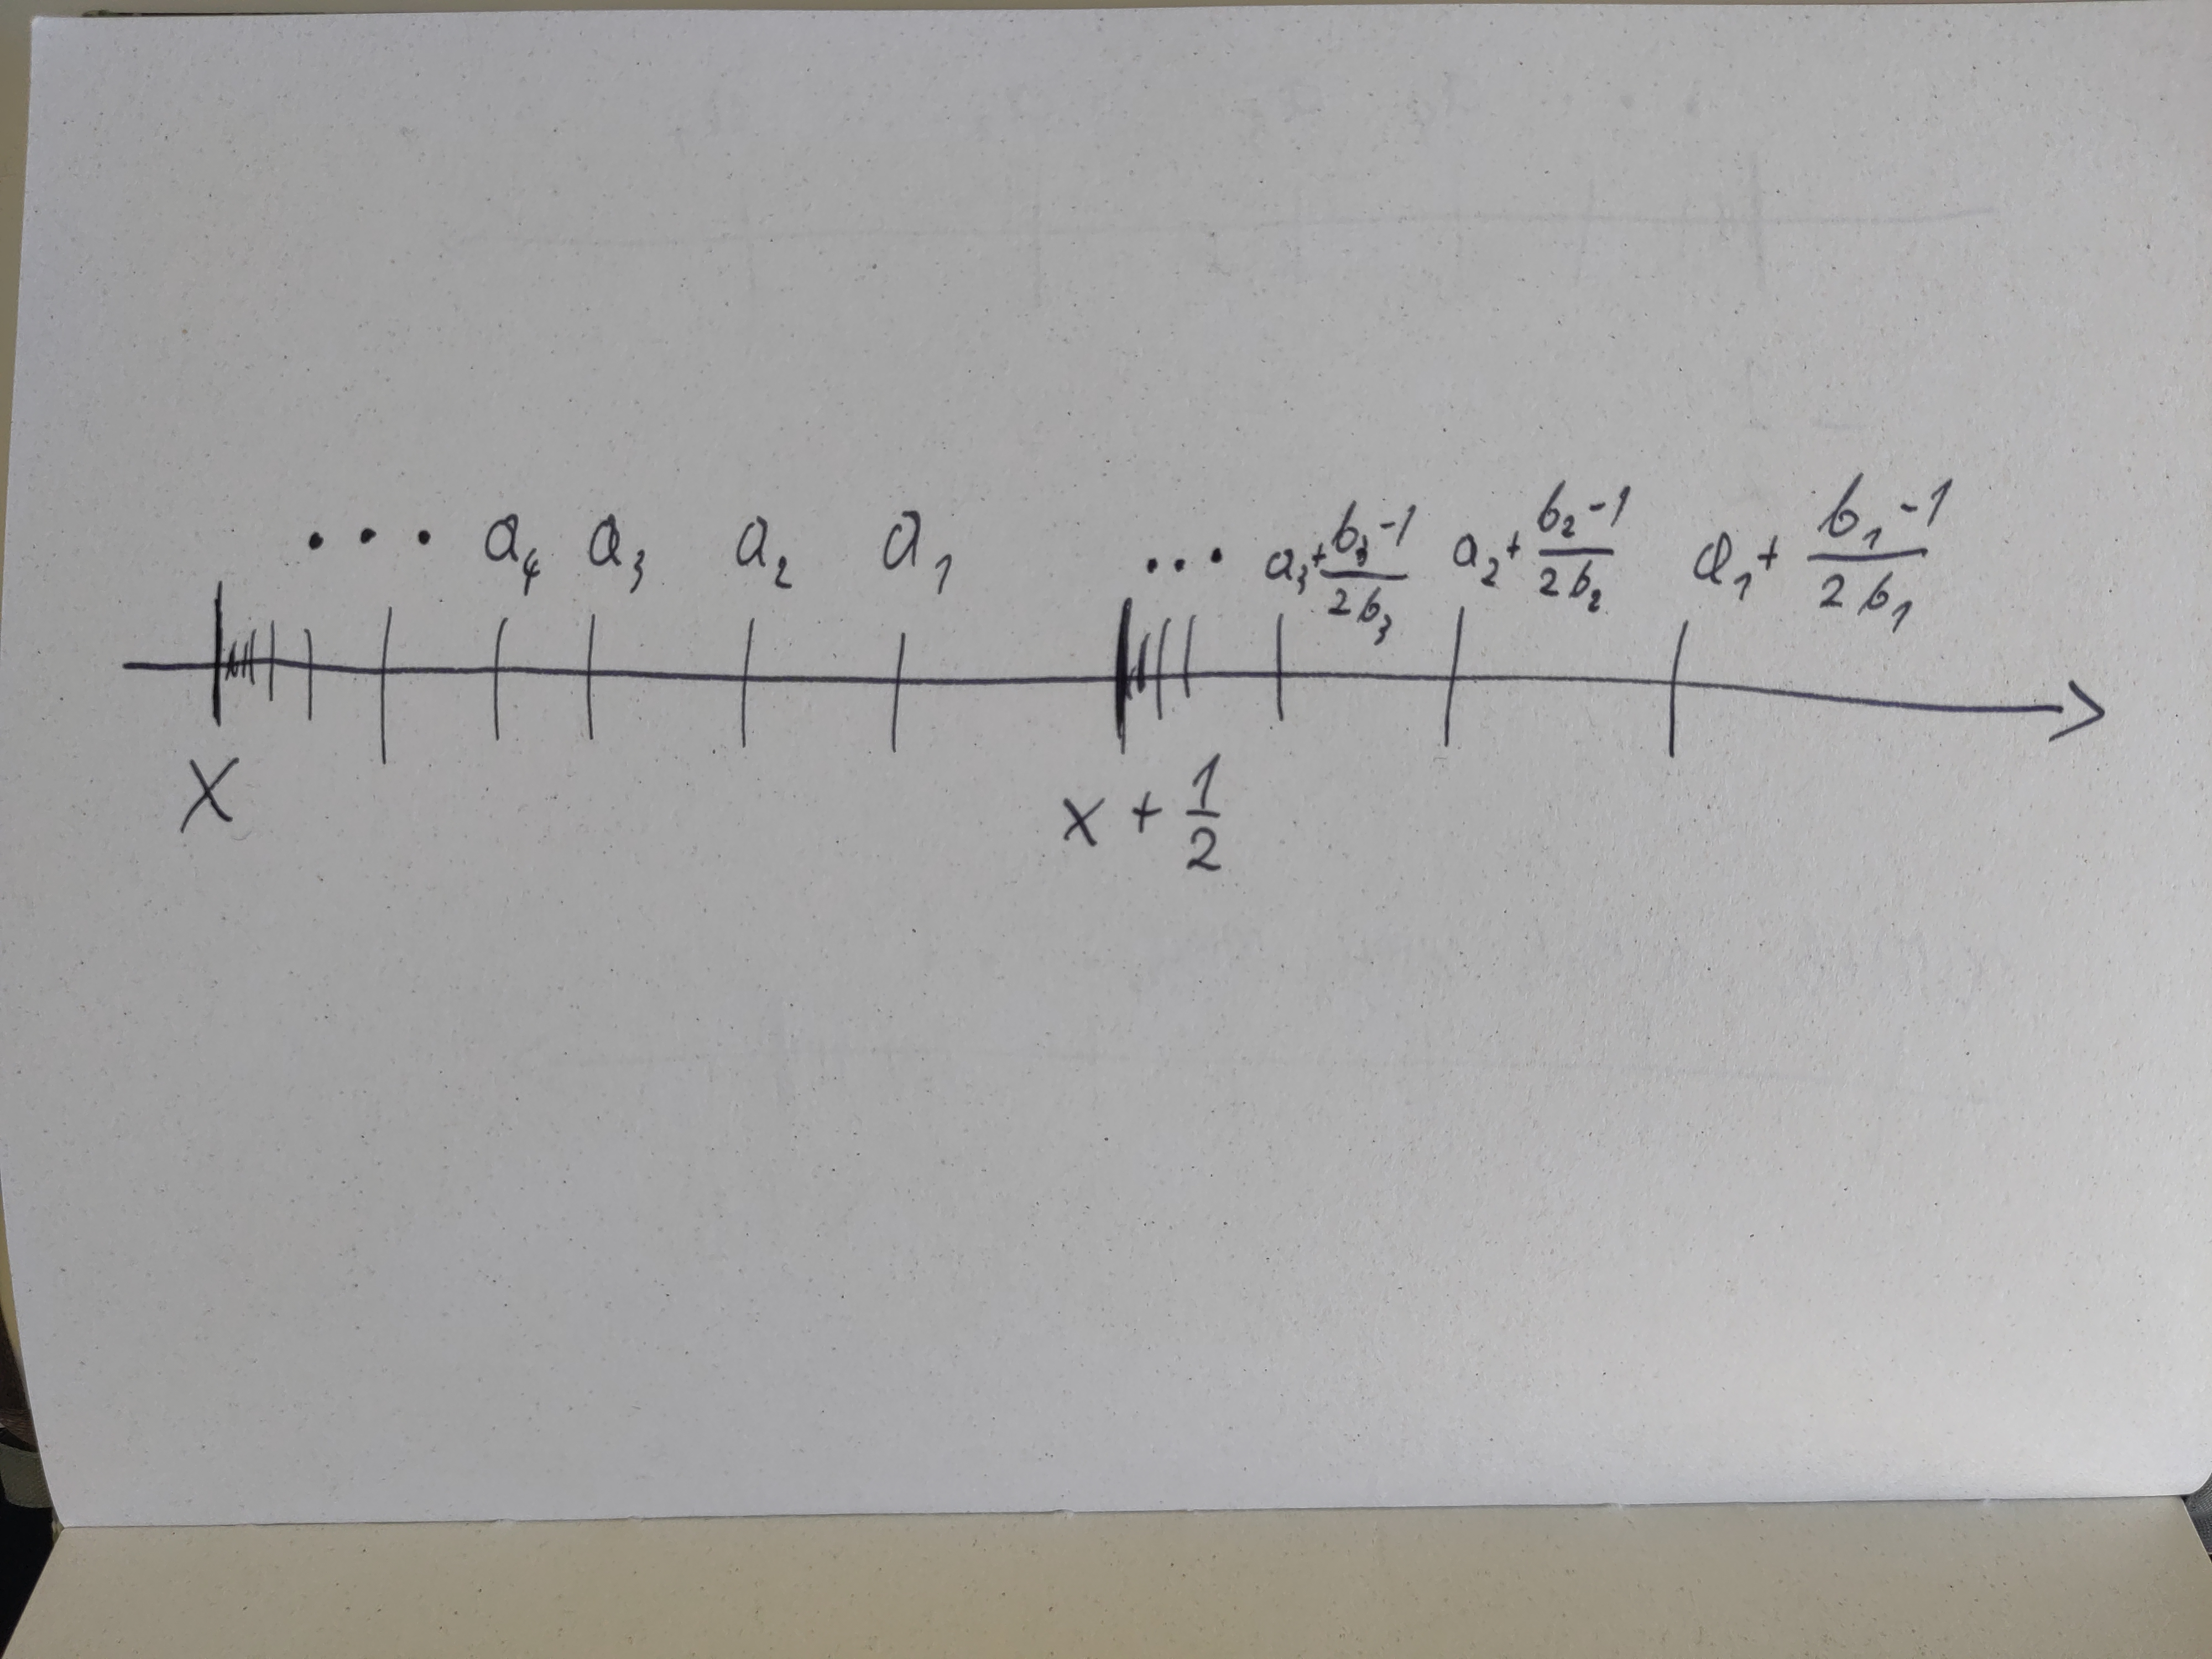 ... a₄ a₃ a₂ a₁ ... a₃+(b₃-1)/(2b₃) a₂+(b₂-1)/(2b₂) a₁+(b₁-1)/(2b₁)
x x + 1/2